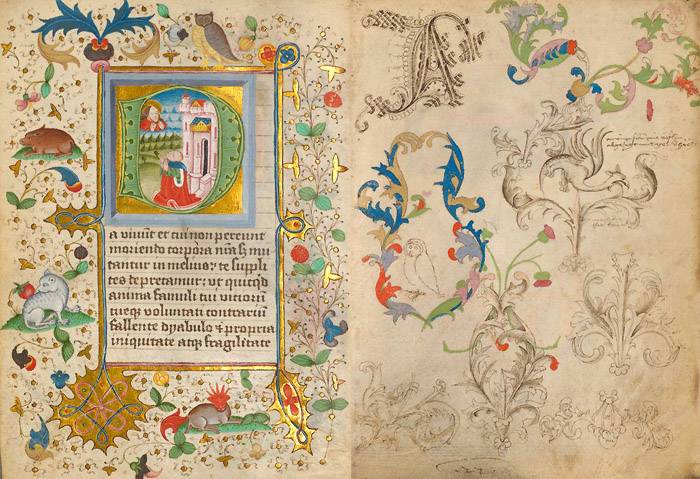 D
a viuūt et cui non pereunt
moriendo corpora nr̄a sꝫ mu
tantur in melius: te suppli
ces deprecamur: vt quicqd̄
anima famuli tui viciorū
tueqꝫ voluntati contrariū
fallente dyabolo ⁊ propria
iniquitate atqꝫ fragilitate
A